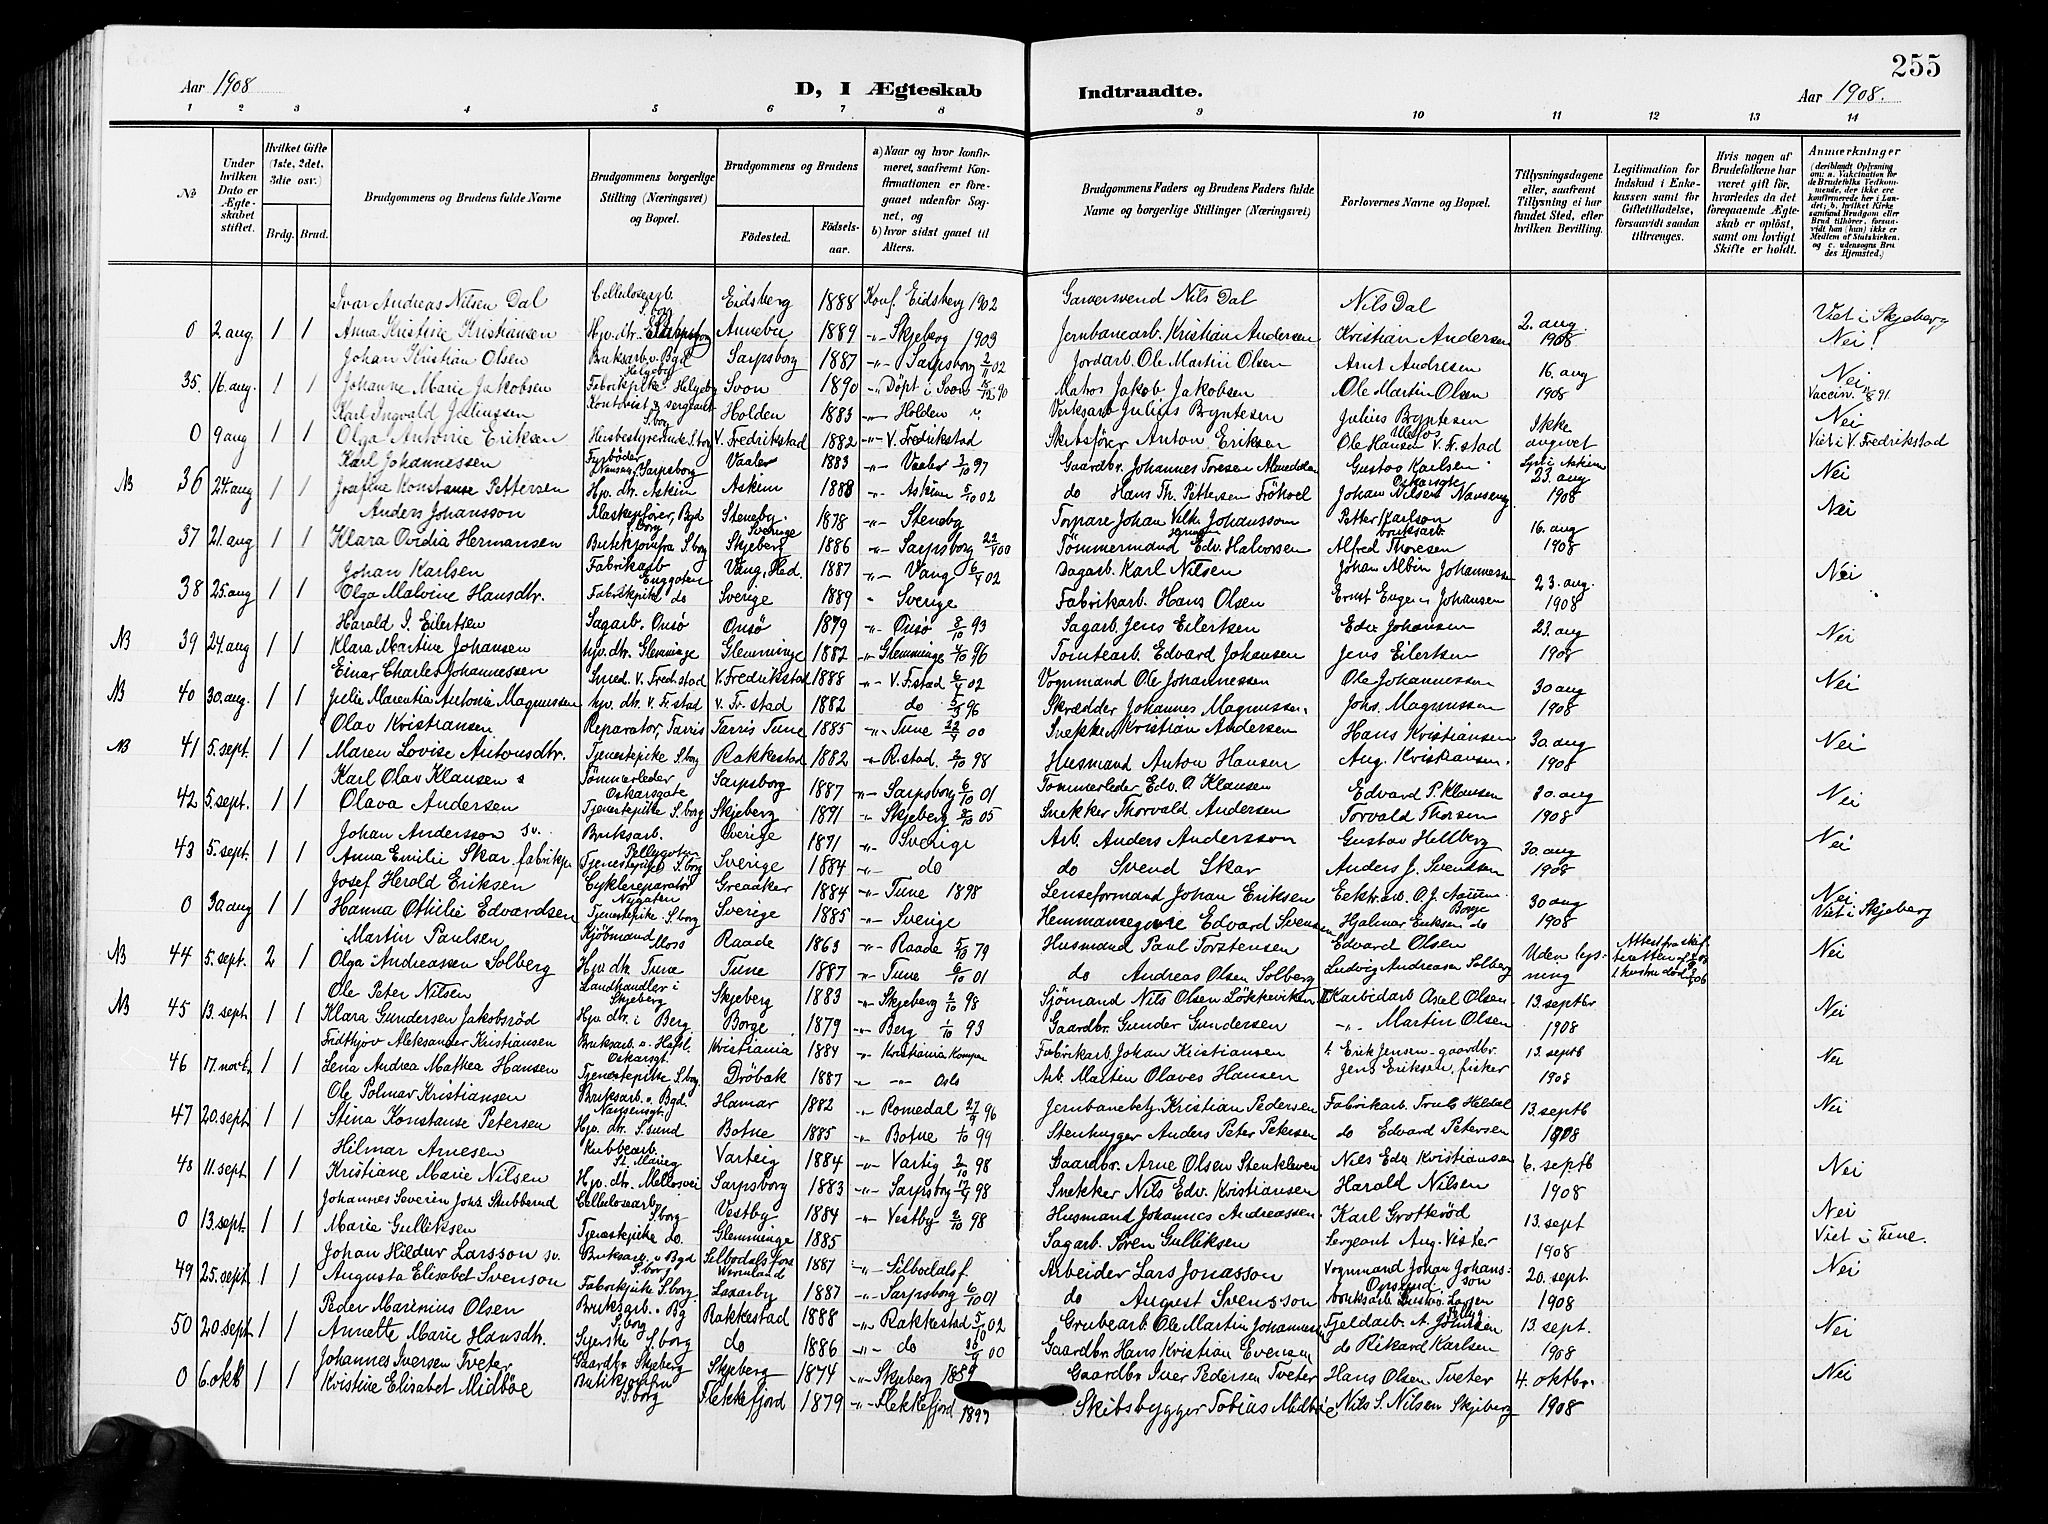 255
Aar 1908
D, I Ægteskab Indtraadte.
Aar 1908.
1 2 3 4 5 6 7 8 9 10 11 12 13 14
No
Under hvilken Dato er Ægteskabet stiftet.
Hvilket Gifte (1ste, 2det, 3die osv.)
Brdg. Brud.
Brudgommens og Brudens fulde Navne
Brudgommens borgerlige Stilling (Næringsvei) og Bopæl.
Brudgommens og Brudens
Fødested. Fødselsaar.
a) Naar og hvor konfirmeret, saafremt Konfirmationen er foregaaet udenfor Sognet, og
b) hvor sidst gaaet til Alters.
Brudgommens Faders og Brudens Faders fulde Navne og borgerlige Stillinger (Næringsvei)
Forlovernes Navne og Bopæl.
Tillysningsdagene eller, saafremt Tillysning ei har fundet Sted, efter hvilken Bevilling.
Legitimation for Indskud i Enkekassen samt for Giftetilladelse, forsaavidt saadan tiltrænges.
Hvis nogen af Brudefolkene har været gift før, hvorledes da det foregaaende Ægteskab er opløst, samt om lovligt Skifte er holdt.
Anmærkninger (deriblandt Oplysning om: a. Vakcination for de Brudefolks Vedkommende, der ikke ere konfirmerede her i Landet; b. hvilket Kirkesamfund Brudgom eller Brud tilhører, forsaavidt han (hun) ikke er Medlem af Statskirken, og c. udensogns Brudes Hjemsted.)
Ivar Andreas Nilsen Dal Celluloseagb. S.borg Eidsberg 1888 Konf. Eidsberg 1902 Garversvend Nils Dal Nils Dal Viet i Skjeberg
0 2. aug. 1 1 Anna Kristine Kristiansen Hjv. dtr. Sarpsborg Annebu 1889 -"- Skjeberg 1903 Jernbanearb. Kristian Andersen Kristian Andersen 2. aug. 1908 Nei!
Johan Kristian Olsen Bruksarb. v. Bgd Helgeby Sarpsborg 1887 -"- Sarpsborg 2/11 02 Jordarb. Ole Martin Olsen Arnt Andresen 16. aug
35. 16. aug. 1 1 Johanne Marie Jakobsen Fabrikpike Helgeby Svon 1890 -"- Døpt i Svon 90 Matros Jakob Jakobsen Ole Martin Olsen 1908 Nei Vaccin. 91.
Karl Ingvald Juliussen Kontorist & sergeant S.borg Holden 1883 -"- Holden Verksarb Julius Bryntesen Julius Bryntesen Ulefos Ikke Nei
0 9 aug 1 1 Olga Antonie Eriksen Husbestyrerinde S.borg V. Fredrikstad 1882 -"- V. Fredrikstad Skibsfører Anton Eriksen Ole Hansen V. Fr.stad angivet Viet i V. Fredrikstad
Karl Johannessen Fyrbøder Nansensg. Sarpsborg Vaaler 1883 -"- Vaaler 3/10 97 Gaardbr. Johannes Toresen Gustav Karlsen Oskarsgte Lyst i Askim
NB 36 24. aug 1 1 Josefine Konstanse Pettersen Hjv. dtr. Askim Askim 1888 -"- Askim 5/10 02 do Hans Th. Pettersen Frøhoel Johan Nilsen Nansensg 23. aug 1908 Nei
Anders Johansson Kraskefører, Bgd S.borg Steneby. Sverige 1878 -"- Steneby Torpare Johan Vilh. Johansson Petter Karlson bruksarb. Nei
37 21. aug 1 1 Klara Ovidia Hermansen Butikjomfru S.borg Skjeberg 1886 -"- Sarpsborg 22/4 00 Tømmermand Edv. Halvorsen Alfred Thoresen 16. aug 1908
Johan Karlsen Fabrikarb Enggaten Vang, Hed. 1887 -"- Vang 6/4 02 Sagarb. Karl Nilsen Johan Albin Johannessen Nei
38 25. aug 1 1 Olga Malvine Hansdtr. Fabrikpike do Sverige 1889 " Sverige Fabrikarb. Hans Olsen Ernst Eugen Johansen 23. aug. 1908
Harald I. Eilertsen Sagarb. Onsø Onsø 1879 -"- Onsø 8/10 93 Sagarb. Jens Eilertsen Edv. Johansen 23. aug
NB 39 24. aug 1 1 Klara Martine Johansen hjv. dtr. Glemminge Glemminge 1882 -"- Glemminge 4/10 96 Tomtearb. Edvard Johansen Jens Eilertsen 1908 Nei
Einar Charles Johannessen Smed. V. Fred.stad V. Fredrikstad 1888 -"- V. F.stad 6/4 02 Vognmand Ole Johannessen Ole Johannessen 30 aug
NB 40 30. aug. 1 1 Julie Marentia Antonie Magnussen hjv. dtr. V. Fr.stad V. Fr.stad 1882 do 3/5 96 Skrædder Johannes Magnussen. Johs. Magnussen 1908 Nei
Olav Kristiansen Reparatør, Tarris Tarris Tune 1885 -"- Tune 22/4 00 Snekker Kristian Andersen Hans Kristiansen 30. aug
NB 41 5. sept. 1 1 Maren Lovise Antonsdtr. Tjenestepike S.borg Rakkestad 1882 -"- R.stad. 2/10 98 Husmand Anton Hansen Aug. Kristiansen. 1908 Nei
Karl Olav Klausen Tømmerleder Oskarsgate Sarpsborg 1887 -"- Sarpsborg 6/10 01 Tømmerleder Edv. O. Klausen Edvard P. Klausen 30. aug
42 5. sept. 1 1 Olava Andersen Tjenestepike S.borg Skjeberg 1891 -"- Skjeberg 8/10 05 Snekker Thorvald Andersen Torvald Thorsen 1908 Nei
Johan Andersson sv. Bruksarb. Sverige 1871 -"- Sverige Arb. Anders Andersson Gustav Hellberg
43 5. sept. 1 1 Anna Emilie Skar, fabrikp. Pellygaten Tjenestepike S.borg Sverige 1884 -"- do do Svend Skar Anders J. Svendsen 30. aug 1908 Nei
Josef Herold Eriksen Cyklereparatør Nygaten Greaaker 1884 -"- Tune 1898 Lenseformand Johan Eriksen Ektr.arb. O. J. Borge Nei
0 30. aug 1 1 Hanna Othilie Edvardsen Tjenestepike S.borg Sverige 1885 -"- Sverige Hemmansegare Edvard Svensen Hjalmar Eriksen do 30 aug 1908 Viet i Skjeberg
Martin Paulsen Kjøbmand Moss Raade 1863 -"- Raade 5/10 79 Husmand Paul Torstensen Edvard Olsen Attest fra skif-
NB 44 5. sept. 2 1 Olga Andreassen Solberg Hjv. dtr. Tune Tune 1887 -"- Tune 6/10 01 do Andreas Olsen Solberg Ludvig Andreasen Solberg Uden lysning teretten 1. hustru død 06 Nei
Ole Peter Nilsen Landhandler i Skjeberg Skjeberg 1883 -"- Skjeberg 2/10 98 Sjømand Nils Olsen Løkkeviken Karbidarb Axel Olsen 13. septbr
NB 45 13. sept. 1 1 Klara Gundersen Jakobsrød Hjv. dtr. i Berg Borge 1879 -"- Berg 1/10 93 Gaardbr. Gunder Gundersen -"- Martin Olsen 1908 Nei
Fridthjov Aleksander Kristiansen Bruksarb. v. Hafsl. Oskarsgt. Kristiania 1884 -"- Kristiania Kampen Fabrikarb. Johan Kristiansen f. Erik Jensen - gaardbr. 13. septb
46 17. novb. 1 1 Lena Andrea Mathea Hansen Tjenestepike S.borg. Drøbak 1887 " -"- Oslo Arb. Martin Olaves Hansen Jens Eriksen, fisker 1908 Nei
Ole Polmar Kristiansen Bruksarb. v. Bgd. Nansensgt. Hamar 1882 -"- Romedal 27/9 96 Jernbanebetj. Kristian Pedersen Fabrikarb. Truls Heldal 13. septb
47 20. sept. 1 1 Stina Konstanse Petersen Hjv. dtr. S.sund Botne 1885 -"- Botne 1/10 99 Stenhugger Anders Peter Petersen do Edvard Petersen 1908 Nei
Hilmar Arnesen Kubbearb. St. Marieg Varteig 1884 -"- Vartig 2/10 98 Gaardbr. Arne Olsen Stenkleven Nils Edv. Kristiansen 6. septb
48 11. sept. 1 1 Kristiane Marie Nilsen Hjv. dtr. Mellosvei Sarpsborg 1883 -"- Sarpsborg 17/4 98 Snekker Nils Edv. Kristiansen Harald Nilsen 1908 Nei
Johannes Severin Johs. Stubberud Cellulosearb. S.borg Vestby 1884 -"- Vestby 2/10 98 Husmand Johannes Andreassen Karl Grotterød Nei
0 13. sept. 1 1 Marie Gulliksen Tjenestepike do. Glemminge 1885 Sagarb. Søren Gulliksen Sergeant Aug. Vister 13. sept 1908 Viet i Tune.
Johan Hildur Larsson sv. Bruksarb. v. Bgd S.borg Silbodalsfors Wermland 1887 -"- Silbodalsf Arbeider Lars Jonasson Vognmand Johan Johansson Nei
49 25. sept. 1 1 Augusta Elisabet Svenson Fabrikpike S.borg. Laxarby 1887 -"- Sarpsborg 6/10 01 do August Svensson bruksarb. Gustav Larsen 20. sept. 1908
Peder Marinius Olsen Bruksarb. v. Bg S.borg Rakkestad 1888 -"- Rakkestad 5/10 02 Grubearb. Ole Martin Johannessen Fjeldarb. A. Jensen 13. sept.
50 20. sept. 1 1 Annette Marie Hansdtr. Syerske S.borg do 1886 -"- do 30/9 00 Gaardbr. Hans Kristian Evensen do Rikard Karlsen 1908 Nei
Johannes Iversen Tveter Gaardbr. Skjeberg Skjeberg 1874 -"- Skjeberg 1889 Gaardbr. Iver Pedersen Tveter Hans Olsen Tveter 4. oktbr.
0 6. oktb 1 1 Kristine Elisabet Midbøe Butikjomfru S.borg Flekkefjord 1879 -"- Flekkefjord 1893 Skibsbygger Tobias Midbøe Nils S. Nilsen Skjeberg 1908 Nei